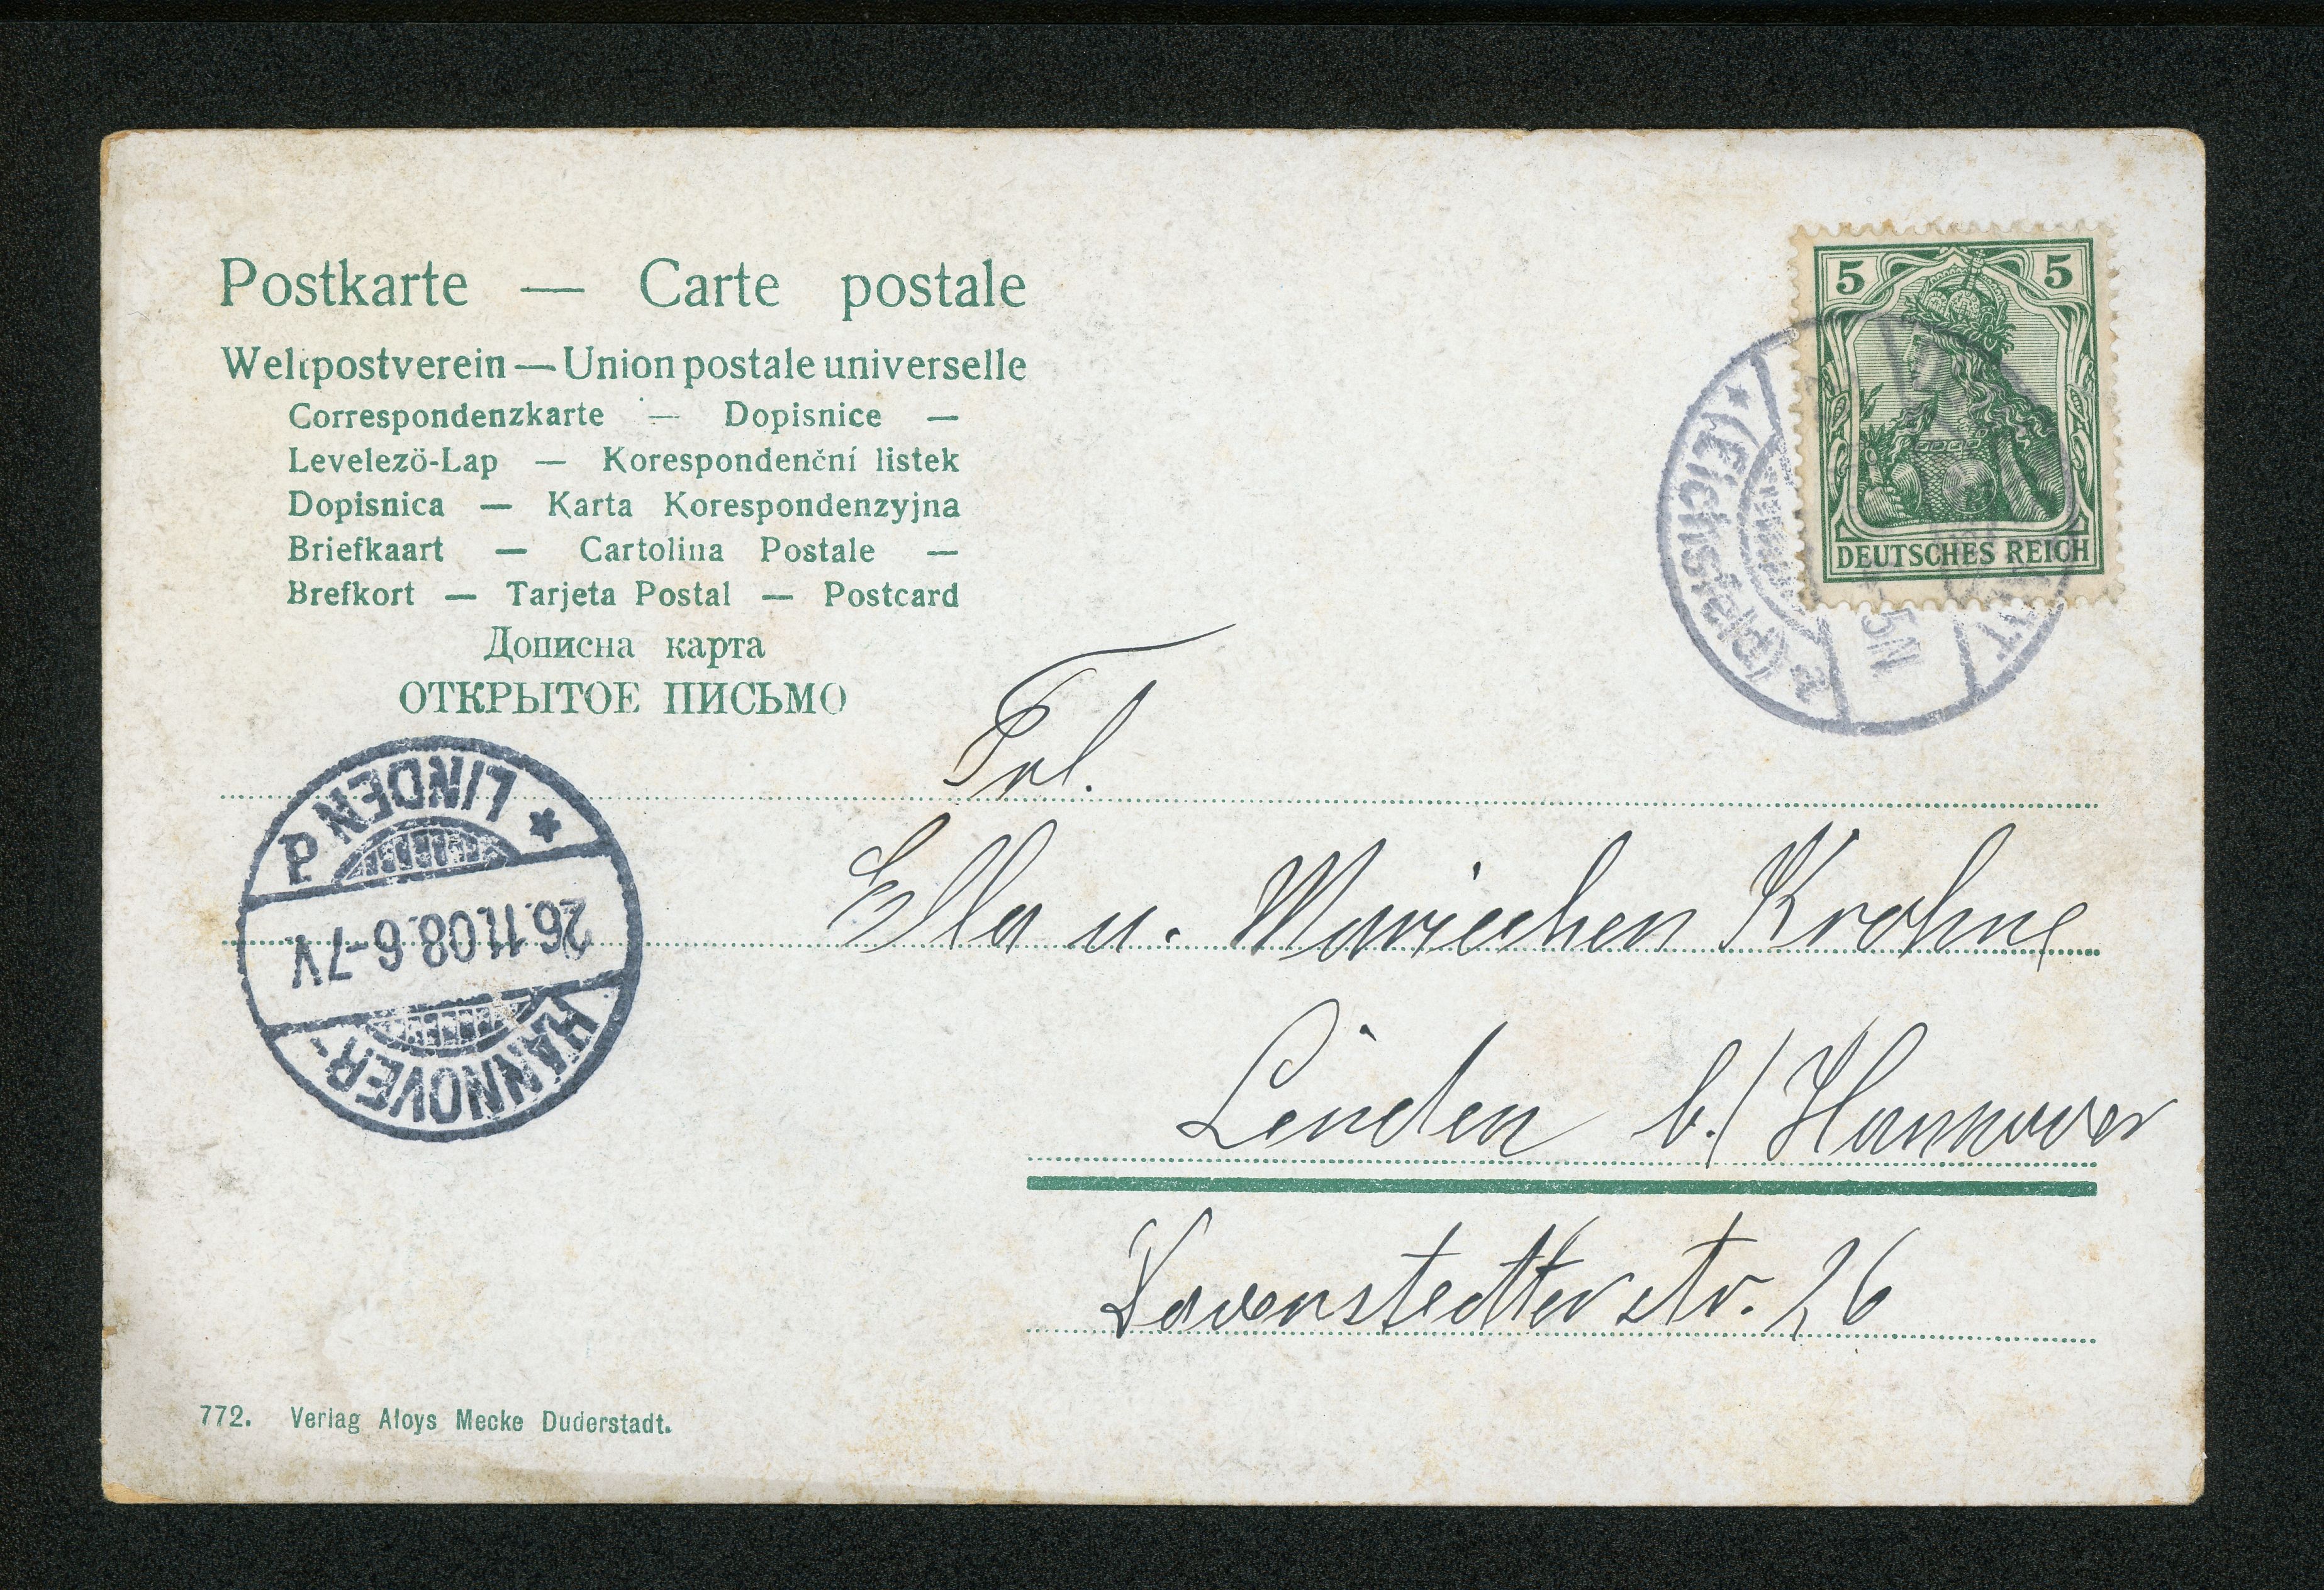 Postkarte — Carte postale
Weltpostverein — Union postale universelle
Correspondenzkarte — Dopisnice —
Levelezö-Lap — Korespondenční listek
Dopisnica — Karta Korespondenzyjna
Briefkaart — Cartolina Postale —
Brefkort — Tarjeta Postal — Postcard
Дописна карта
ОТКРЫТОЕ ПИСЬМО
5 5
DEUTSCHES REICH
(Eichsfeld)
5N
Frl.
Ella u. Mariechen Krohne
Linden b./Hannover
Davenstedter str. 26
HANNOVER-
26.11.08.6-7V
LINDEN
772. Verlag Aloys Mecke Duderstadt.